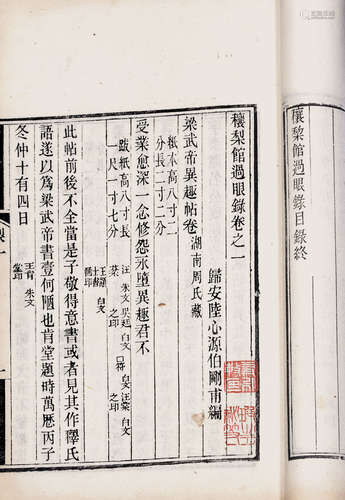 穰棃館過眼錄目錄終
穰棃館過眼錄卷之一
歸安陸心源伯剛甫編
梁武帝異趣帖卷 湖南周氏藏
紙本高八寸二
分長二寸二分
受業愈深一念修怨永墮異趣君不
跋紙高八寸長
一尺一寸七分
此帖前後不全當是子敬得意書或者見其作釋氏
語遂以爲梁武帝書壹何陋也肯堂題時萬厯丙子
冬仲十有四日
王肯堂印 朱文